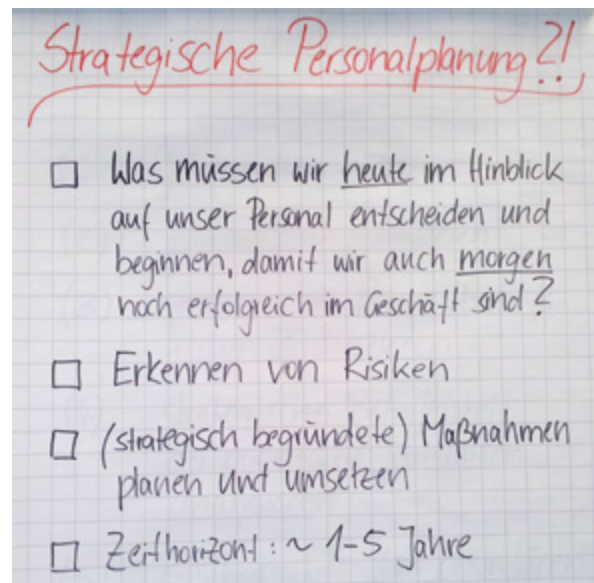 Strategische Personalplanung?!
Was müssen wir heute im Hinblick
auf unser Personal entscheiden und
beginnen, damit wir auch morgen
noch erfolgreich im Geschäft sind?
Erkennen von Risiken
(strategisch begründete) Maßnahmen
planen und umsetzen
Zeithorizont: ~ 1-5 Jahre